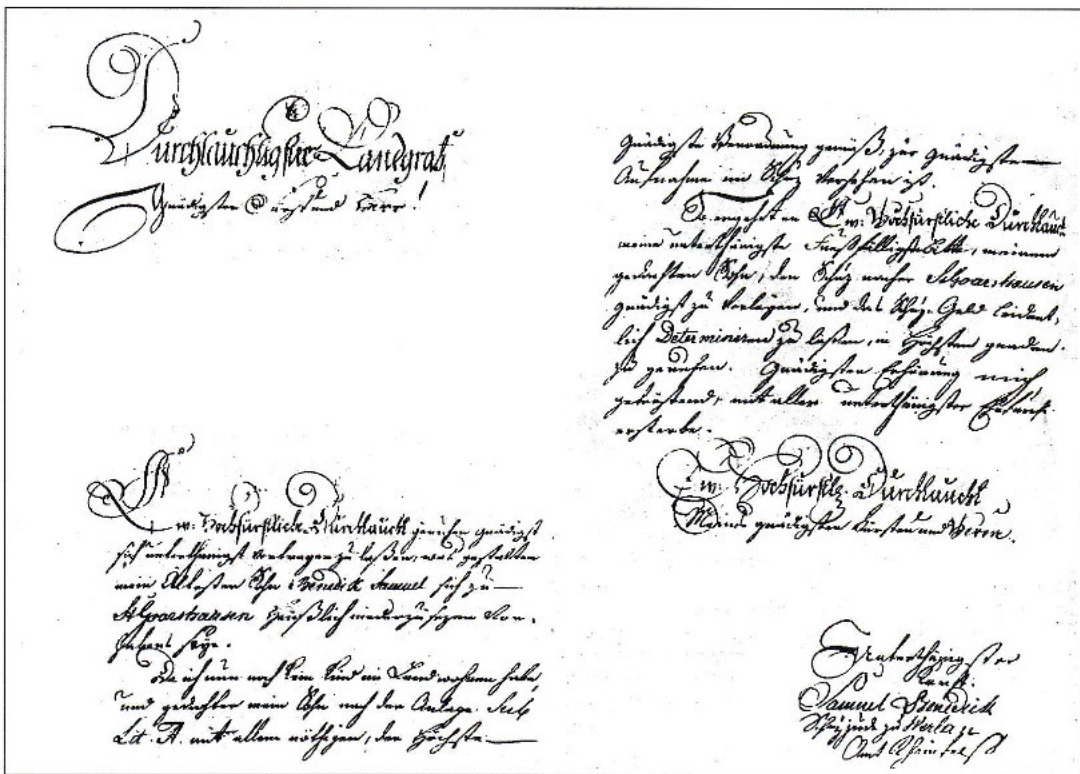 Durchlauchtigster Landgraf,
Gnädigster Fürst und Herr!
Ew: Hochfürstliche Durchlaucht geruhen gnädigst
sich unterthänigst vortragen zu laßen, was gestalten
mein Ältester Sohn Bendick Samuel sich zu
St Goarshausen häußlich niederzusezen Vor-
habens seye.
Da ich nun noch kein Kind im Land wohnen habe,
und gedachter mein Sohn nach der Anlage Sub
Lit. A. mit allem nöthigen, der Höchste
gnädigste Verordnung gemäß, zur gnädigsten
Aufnahme im Schuz versehen ist.
So ergehet an Ew: Hochfürstliche Durchlaucht
meine unterthänigste Fußfälligste Bitte, meinem
gedachten Sohn, den Schuz nacher St Goarshausen
gnädigst zu ertheilen, und das Schuz-Geld leident-
lich Determiniren zu laßen, in Höchsten gnaden
zu geruhen. Gnädigsten Erhörung mich
getröstend, mit aller unterthänigster Ehrfurcht
ersterbe.
Ew: Hochfürstl: Durchlaucht
Meines gnädigsten Fürsten und Herrn.
Unterthänigster
Knecht:
Samuel Bendick
Schuzjude zu Werlau
Amt Rheinfelß